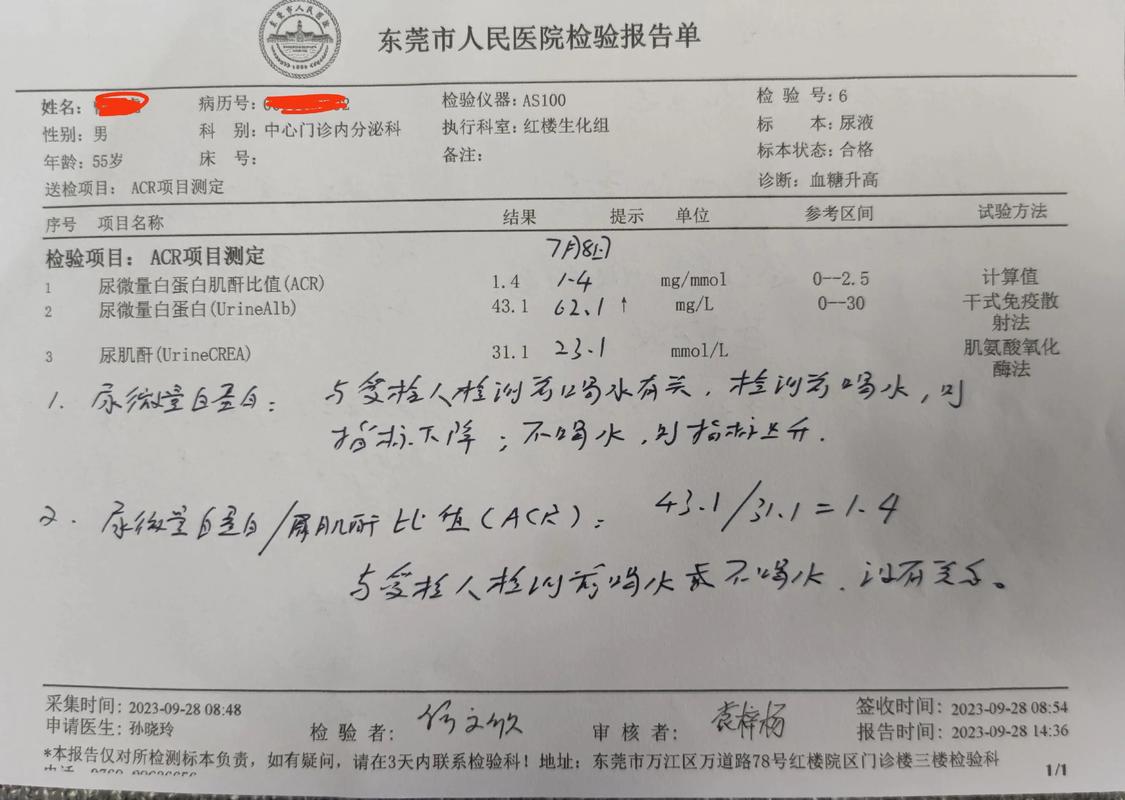 东莞市人民医院
东莞市人民医院检验报告单
姓名: 病历号: 检验仪器: AS100 检 验 号: 6
性别: 男 科 别: 中心门诊内分泌科 执行科室: 红楼生化组 标 本: 尿液
年龄: 55岁 床 号: 备注: 标本状态: 合格
送检项目: ACR项目测定 诊断: 血糖升高
序号 项目名称 结果 提示 单位 参考区间 试验方法
检验项目: ACR项目测定 7月8日
1 尿微量白蛋白肌酐比值(ACR) 1.4 1.4 mg/mmol 0--2.5 计算值
2 尿微量白蛋白(UrineAlb) 43.1 62.1 ↑ mg/L 0--30 干式免疫散
射法
3 尿肌酐(UrineCREA) 31.1 23.1 mmol/L 肌氨酸氧化
酶法
1. 尿微量白蛋白: 与受检人检测前喝水有关, 检测前喝水, 则
指标下降; 不喝水, 则指标上升.
2. 尿微量白蛋白/尿肌酐比值(ACR): 43.1/31.1=1.4
与受检人检测前喝水或不喝水, 没有关系。
采集时间: 2023-09-28 08:48 签收时间: 2023-09-28 08:54
申请医生: 孙晓玲 检 验 者: 审 核 者: 袁梓杨 报告时间: 2023-09-28 14:36
*本报告仅对所检测标本负责, 如有疑问, 请在3天内联系检验科! 地址: 东莞市万江区万道路78号红楼院区门诊楼三楼检验科
1/1